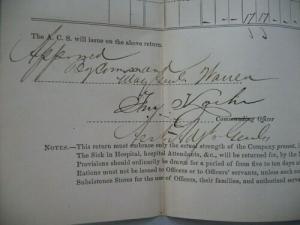 17 17
The A. C. S. will issue on the above return.
Approved
By Command
Maj Genl Warren
Commanding Officer
Genl
NOTES.—This return must embrace only the actual strength of the Company present,
The Sick in Hospital, hospital Attendants, &c., will be returned for, by the
Provisions should ordinarily be drawn for a period of from five to ten days
Rations must not be issued to Officers or to Officers' servants, unless such
Subsistence Stores for the use of Officers, their families, and authorized